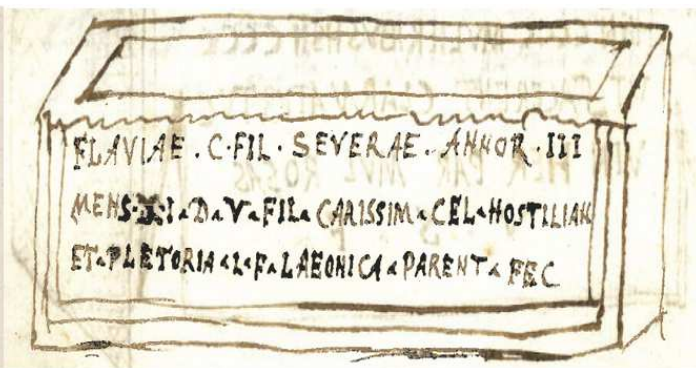 FLAVIAE . C · FIL · SEVERAE . ANNOR · III
I D V FIL CARISSIM CEL HOSTILIAN
ET PLETORIA L F LAEONICA PARENT FEC